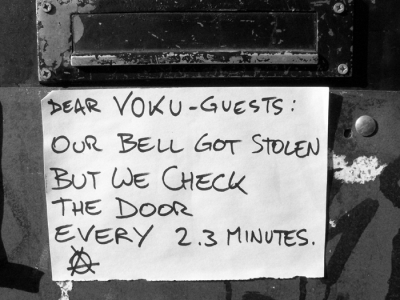 DEAR VOKU-GUESTS:
OUR BELL GOT STOLEN
BUT WE CHECK
THE DOOR
EVERY 2.3 MINUTES.